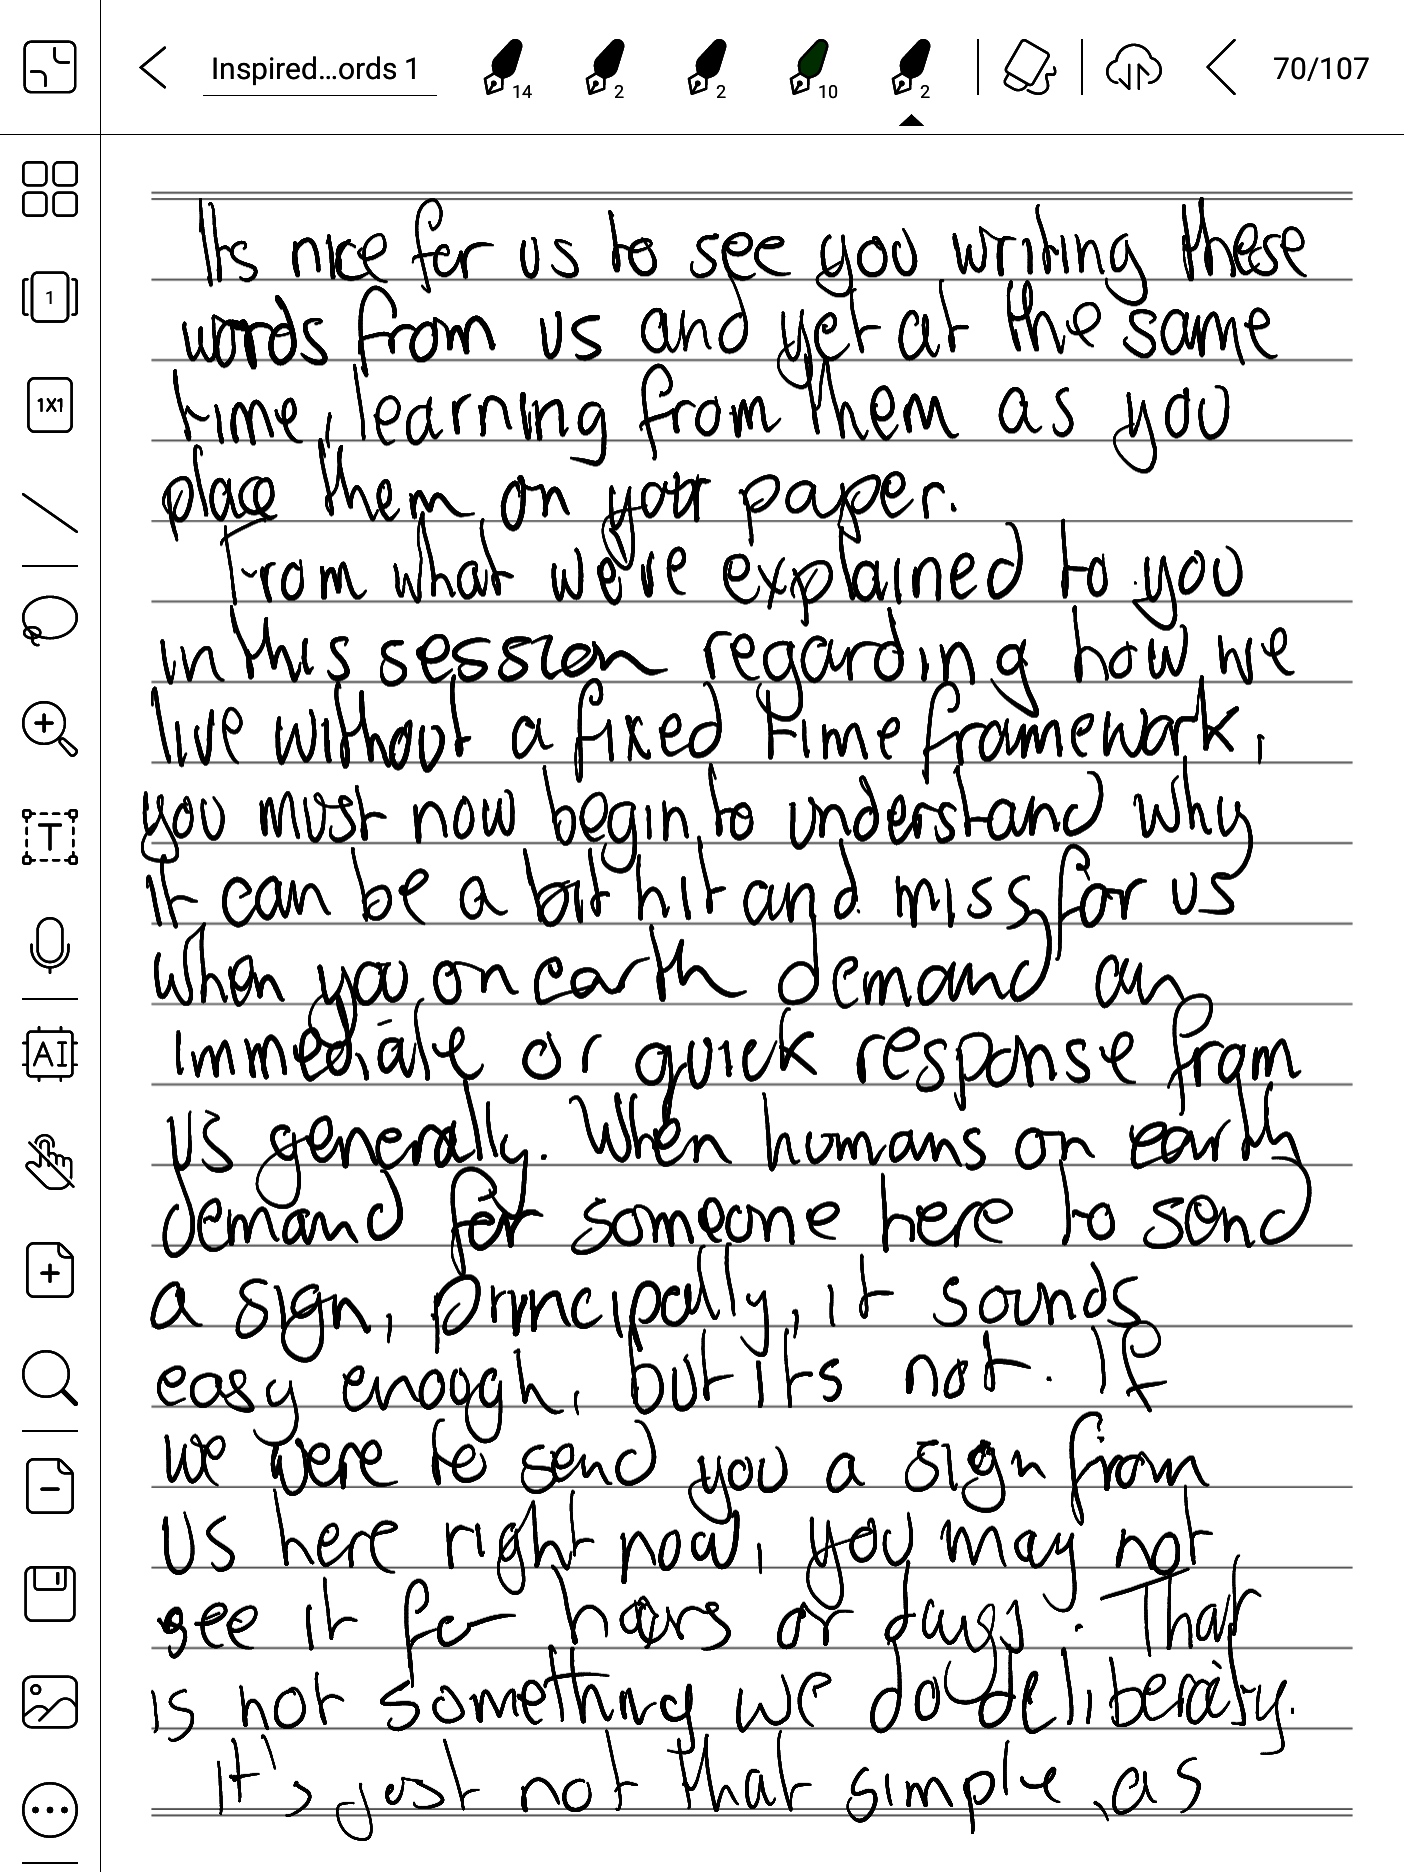 Inspired...ords 1
14
2
2
10
2
70/107
1
1X1
T
AI
Its nice for us to see you writing these
words from us and yet at the same
time, learning from them as you
place them on your paper.
From what we've explained to you
in this session regarding how we
live without a fixed time framework,
you must now begin to understand why
it can be a bit hit and miss for us
when you on earth demand an
immediate or quick response from
us generally. When humans on earth
demand for someone here to send
a sign, principally, it sounds
easy enough, but its not. If
we were to send you a sign from
us here right now, you may not
see it for hours or days. That
is not something we do deliberatly.
It's just not that simple, as